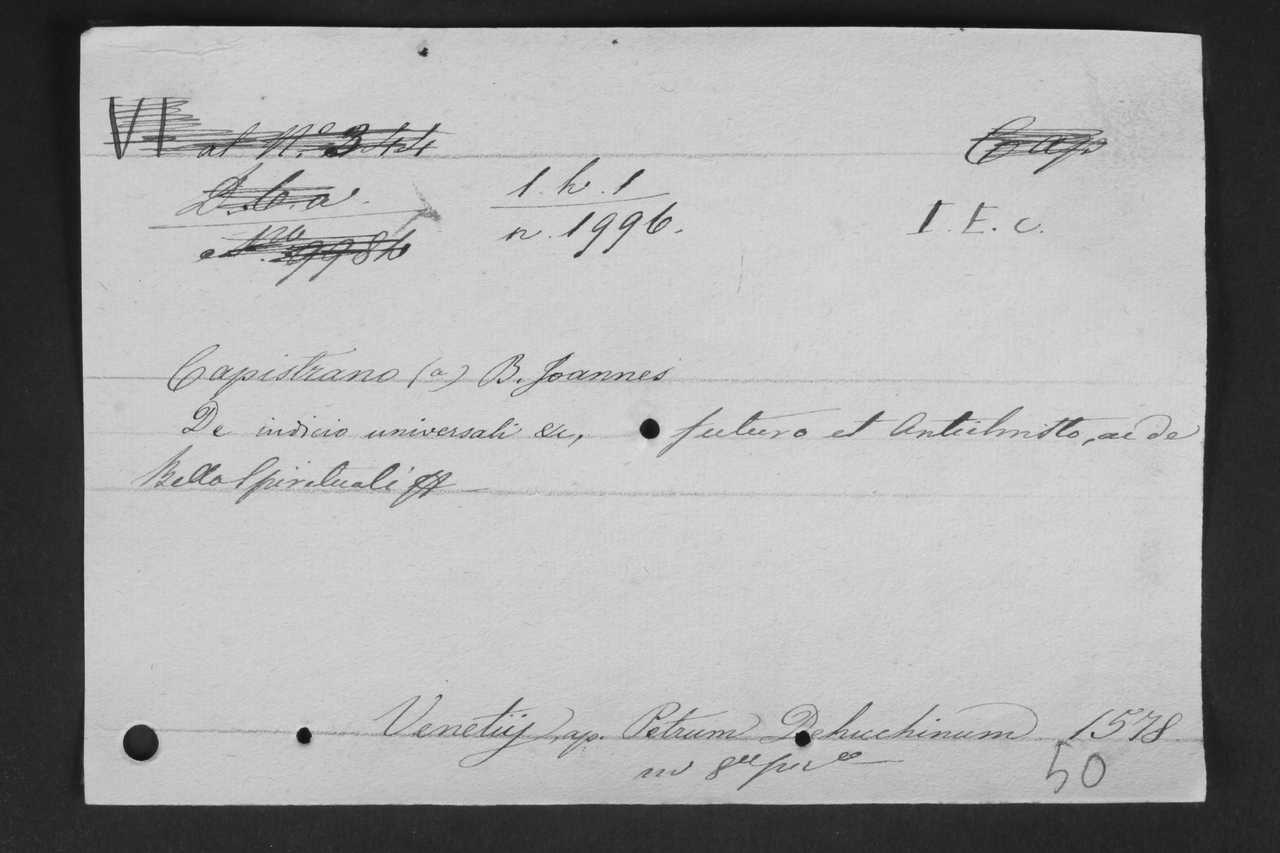 VI al N.º 344
Cap
D. b. a.
1. h. 1
Nro 9984
n. 1996.
I. E. c.
Capistrano (a) B. Joannes
De iudicio universali &c, futuro et Antichristo, ac de
Bello Spirituali
Venetijs, ap. Petrum Dehuchinum 1578
in 8
50